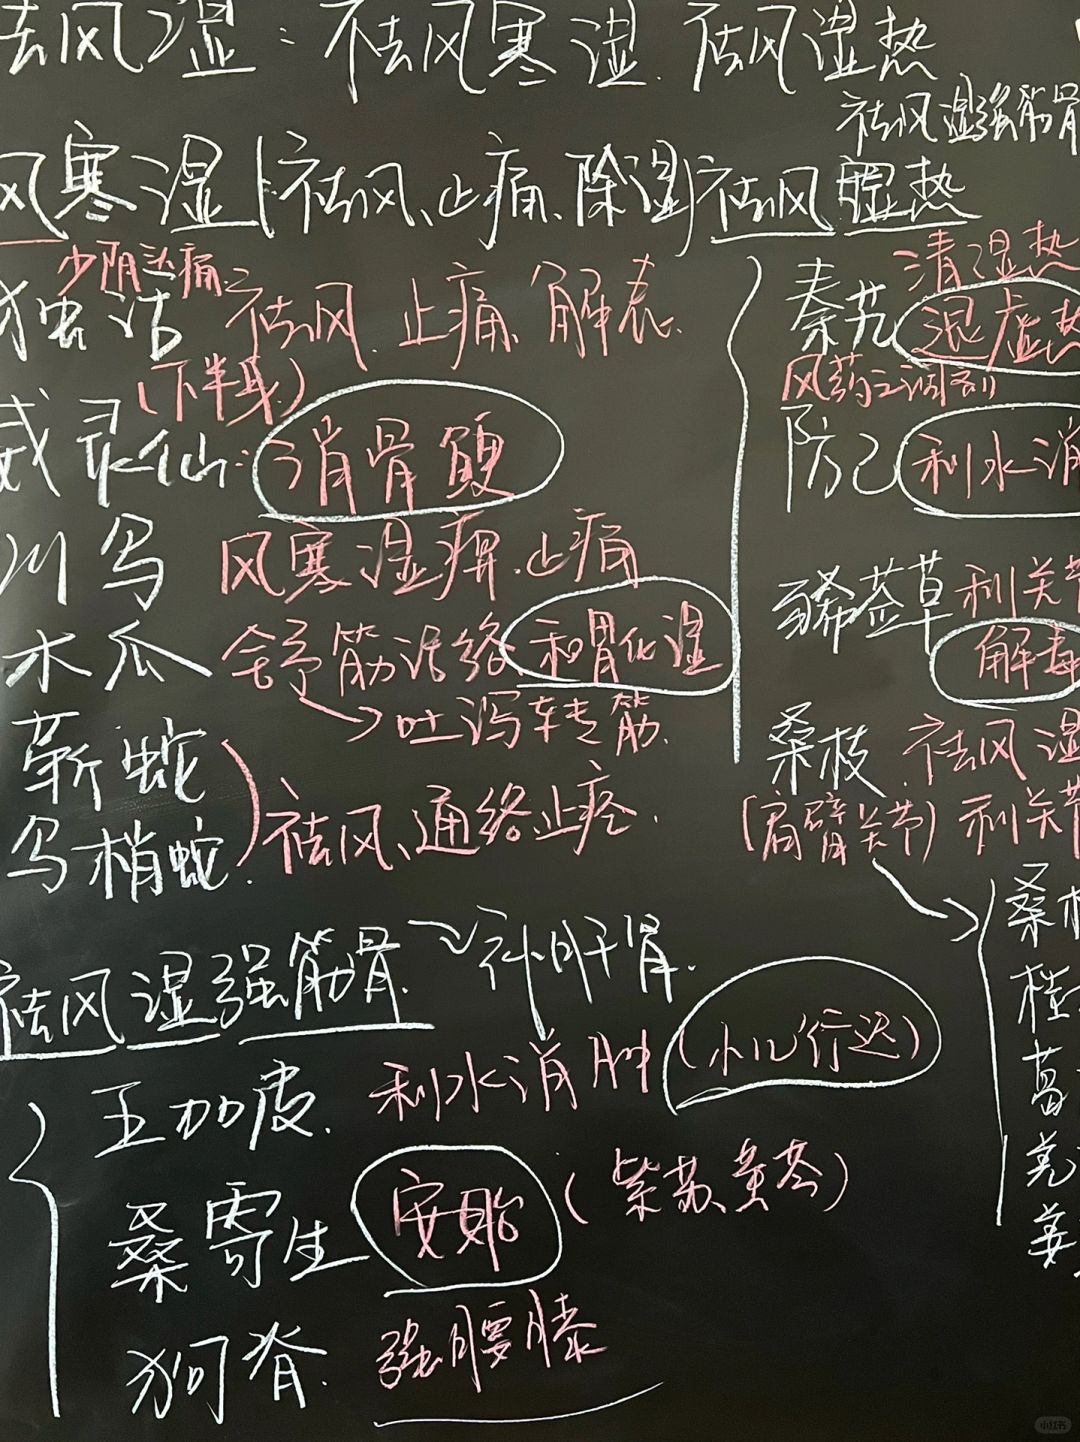 祛风湿：祛风寒湿. 祛风湿热
祛风湿强筋骨
风寒湿 祛风、止痛、除湿
祛风湿热
少阴头痛
独活 祛风. 止痛、解表.
(下半身)
威灵仙: 消骨鲠
川乌 风寒湿痹.止痛
木瓜 舒筋活络 和胃化湿
→吐泻转筋.
蕲蛇
乌梢蛇.
祛风、通络止疼.
清湿热
秦艽 退虚热
风药之润剂
防己 利水消
豨莶草 利关节
解毒
桑枝 祛风湿
(肩臂关节) 利关节
桑枝
桂
葛
羌
姜
祛风湿强筋骨 补肝肾.
五加皮. 利水消肿 (小儿行迟)
桑寄生 安胎 (紫苏、黄芩)
狗脊. 强腰膝
小红书